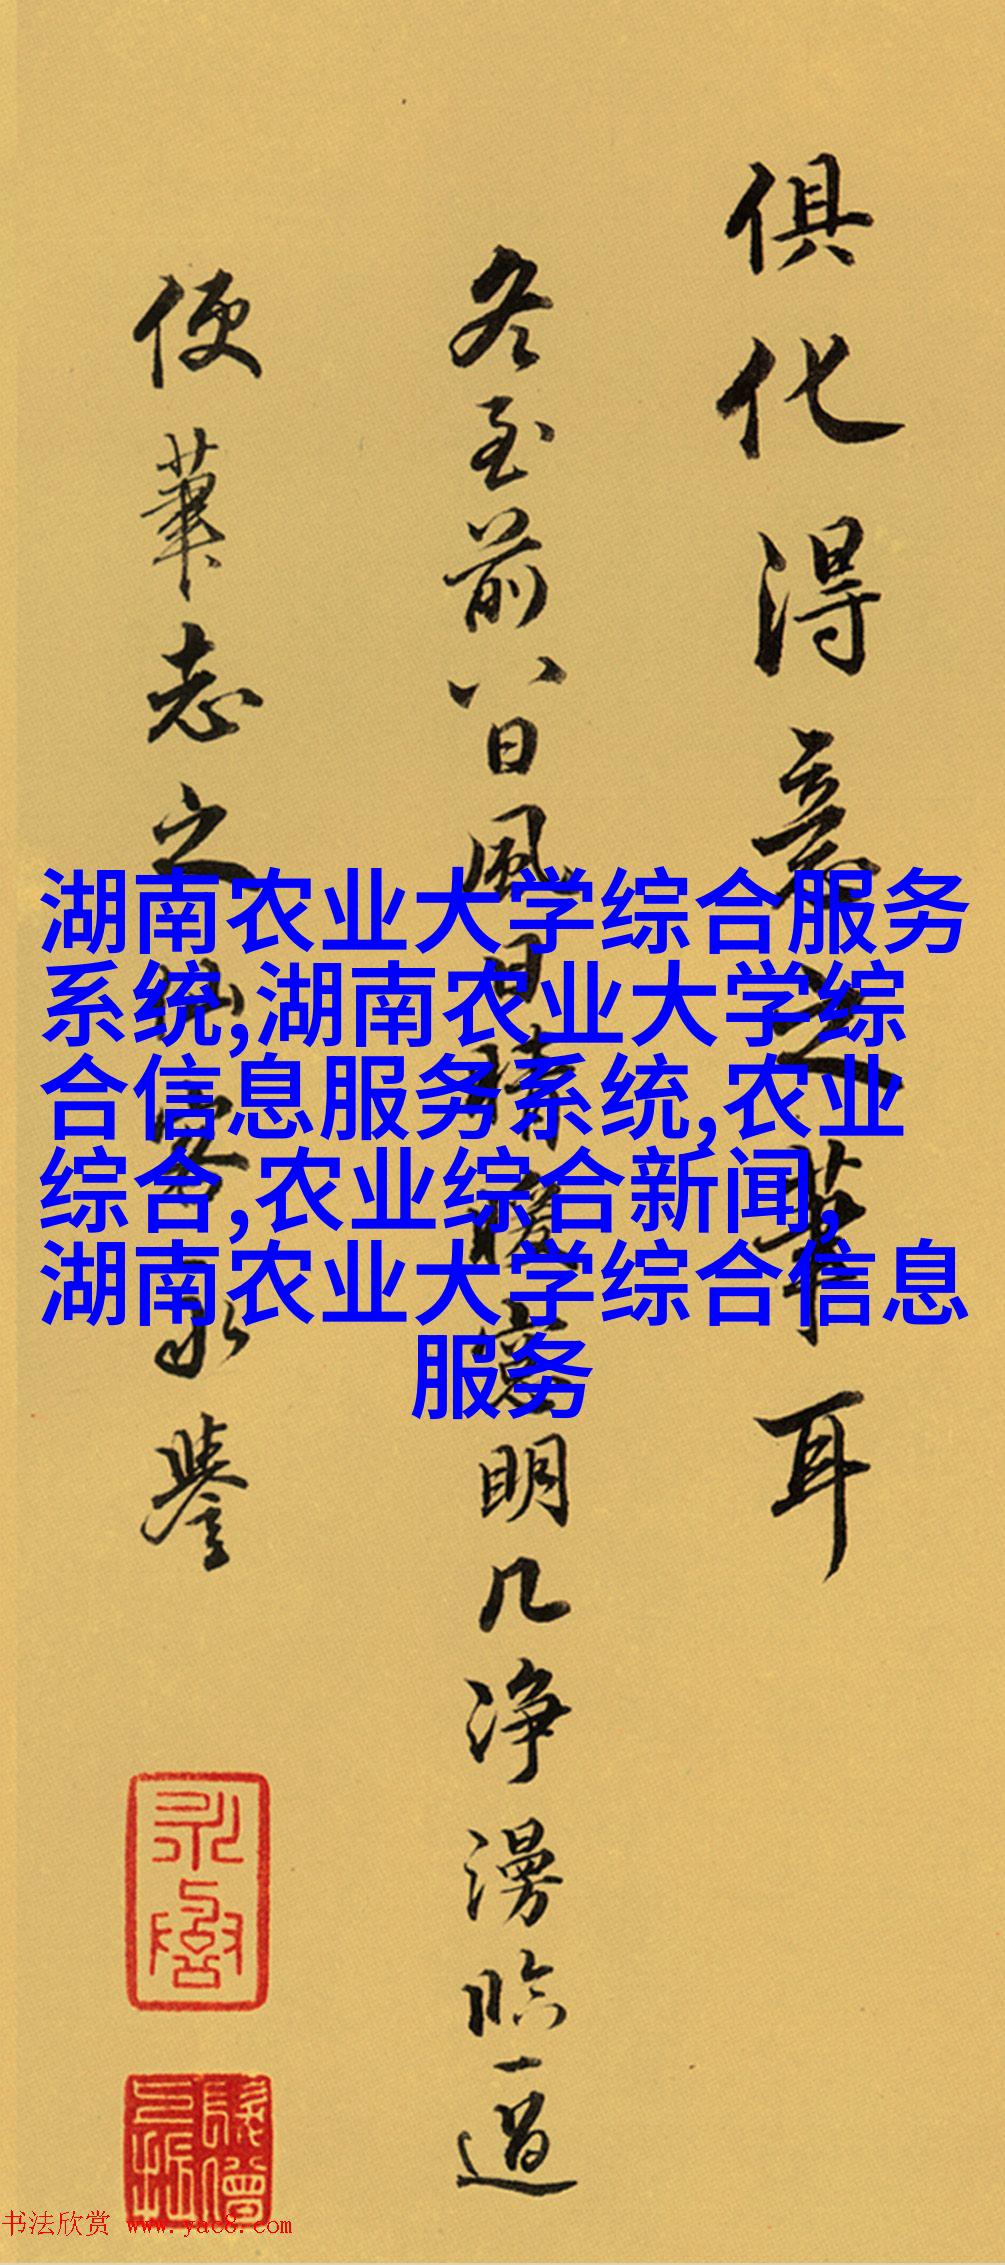 俱化得意之筆耳
冬至前八日風日晴暖窓明几浄漫臨一過
便筆志之 永譽
湖南农业大学综合服务
系统,湖南农业大学综
合信息服务系统,农业
综合,农业综合新闻,
湖南农业大学综合信息
服务
书法欣赏 www.yac8.com